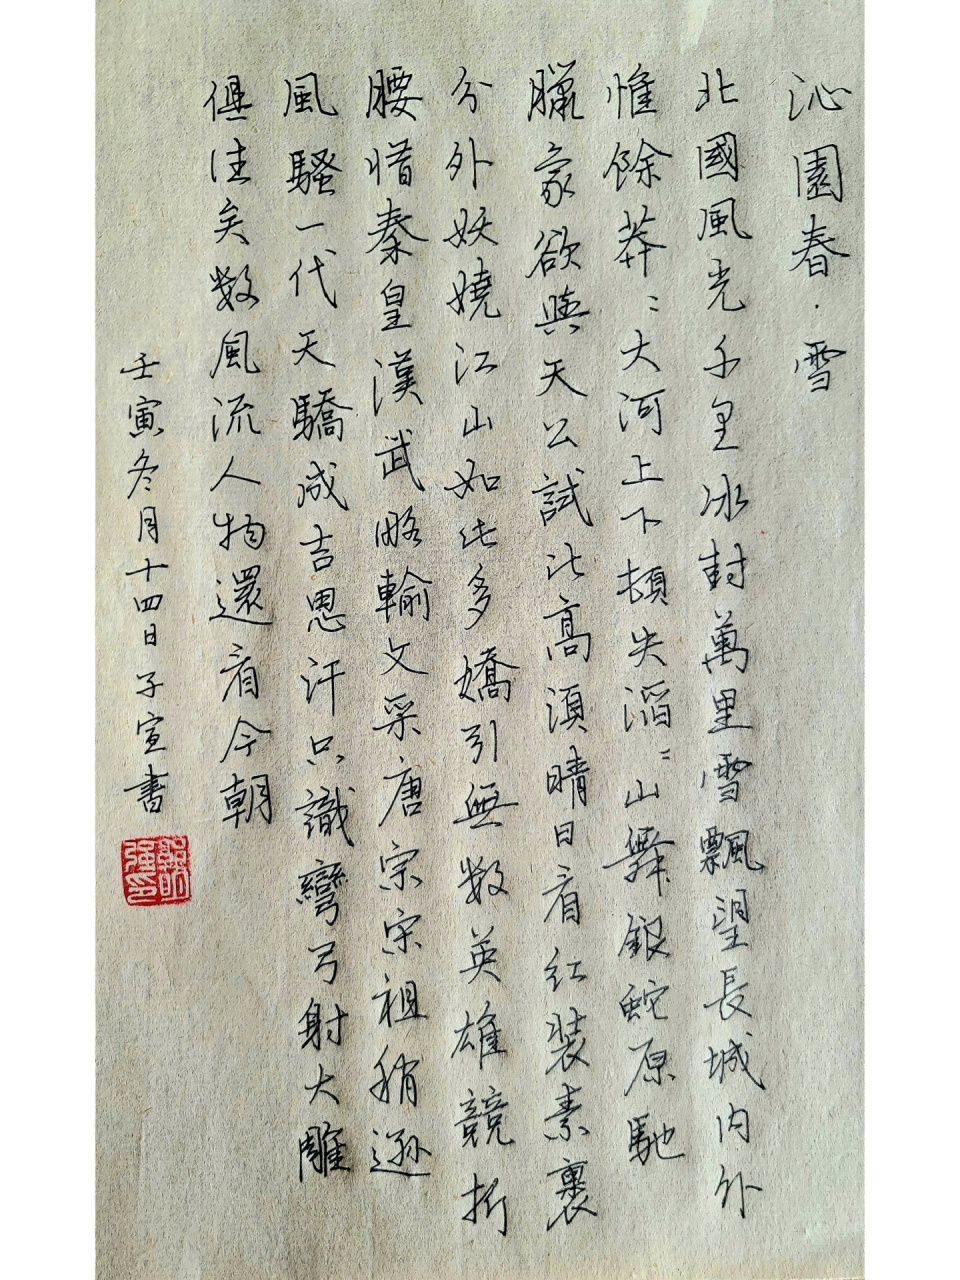 沁園春·雪
北國風光千里冰封萬里雪飄望長城內外
惟餘莽〻大河上下頓失滔〻山舞銀蛇原馳
臘象欲與天公試比高須晴日看紅裝素裹
分外妖嬈江山如此多嬌引無数英雄競折
腰惜秦皇漢武略輸文采唐宗宋祖稍遜
風騷一代天驕成吉思汗只識彎弓射大雕
俱往矣数風流人物還看今朝
壬寅冬月十四日子宣書